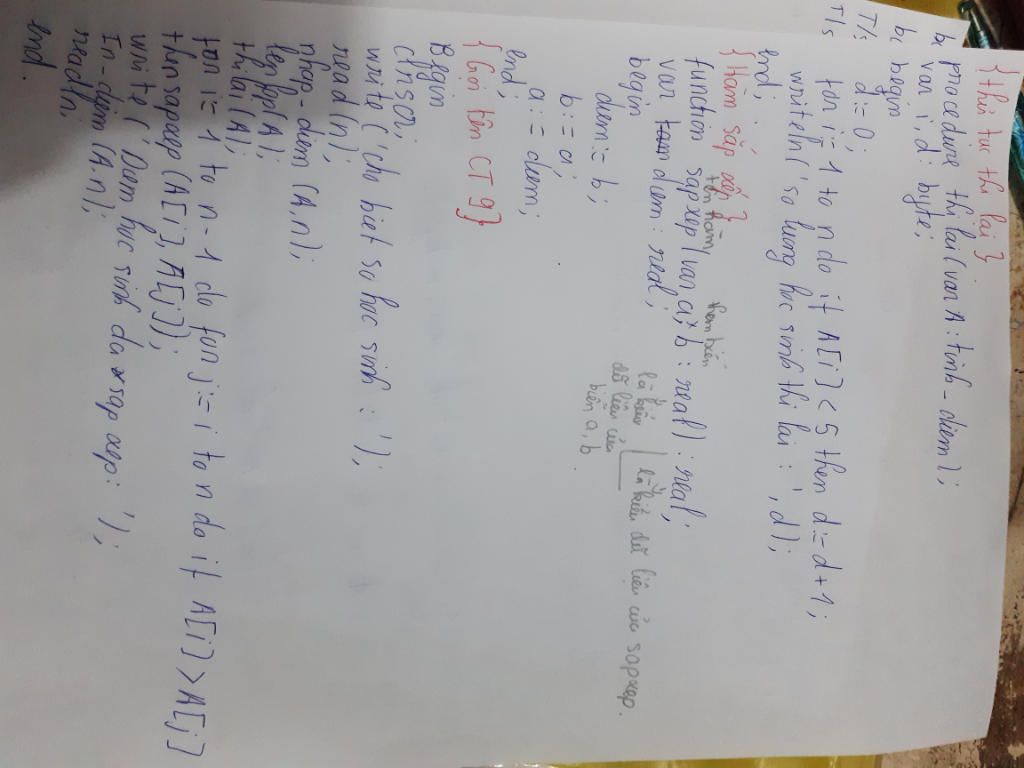 {thủ tục thi lại}
procedure thilai(var A: tinh_diem);
var i, d: byte;
begin
d:=0;
for i:=1 to n do if A[i] < 5 then d:=d+1;
writeln('so luong hoc sinh thi lai : ', d);
end;
{Hàm sắp xếp}
tên hàm
tham biến
function sapxep(var a; b : real) : real;
var diem : real;
là kiểu dữ liệu của sapxep.
là kiểu
dữ liệu của
biến a, b
begin
diem := b;
b := a;
a := diem;
end;
{Gọi tên CT 9}
Begin
clrscr;
write ('cho biet so hoc sinh : ');
read (n);
nhap_diem (A, n);
lenlop(A);
thilai(A);
for i:= 1 to n-1 do for j:= i to n do if A[i] > A[j]
then sapxep (A[i], A[j]);
write ('Diem hoc sinh da sap xep: ');
In_diem (A, n);
readln;
end.